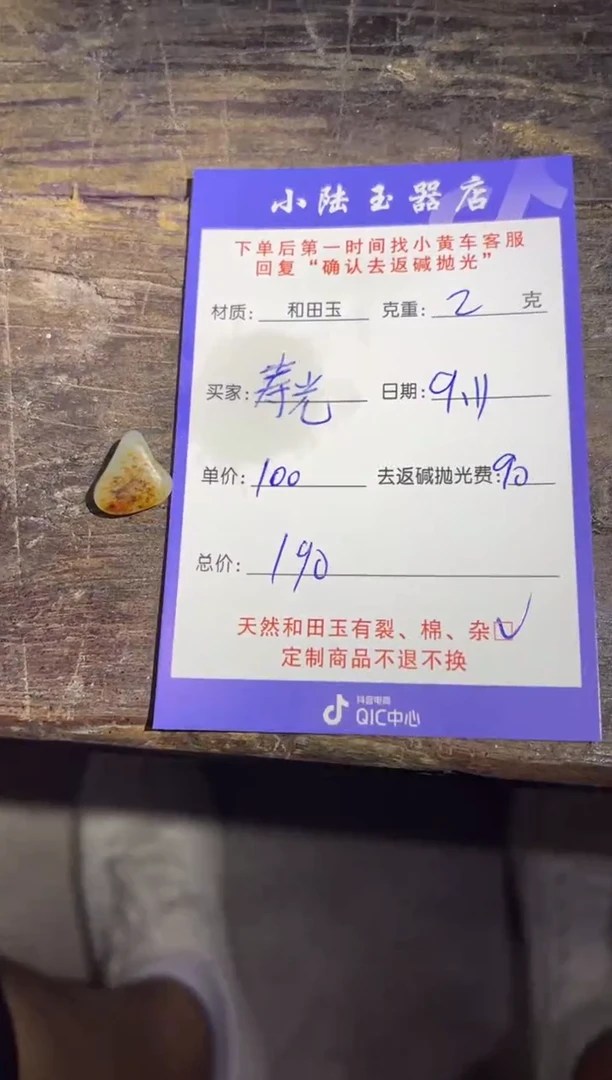 小陆玉器店
下单后第一时间找小黄车客服
回复“确认去返碱抛光”
材质: 和田玉 克重: 2 克
买家: 寿光 日期: 9.11
单价: 100 去返碱抛光费: 90
总价: 190
天然和田玉有裂、棉、杂☑
定制商品不退不换
抖音电商
QIC中心